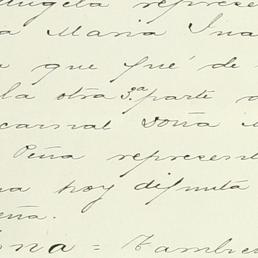 Angela represen
a Maria Ina
a que fué de
la otra 3.ª parte d
carnal Doña
Peña represent
na hoy disfruta
eña.
na = Tambie